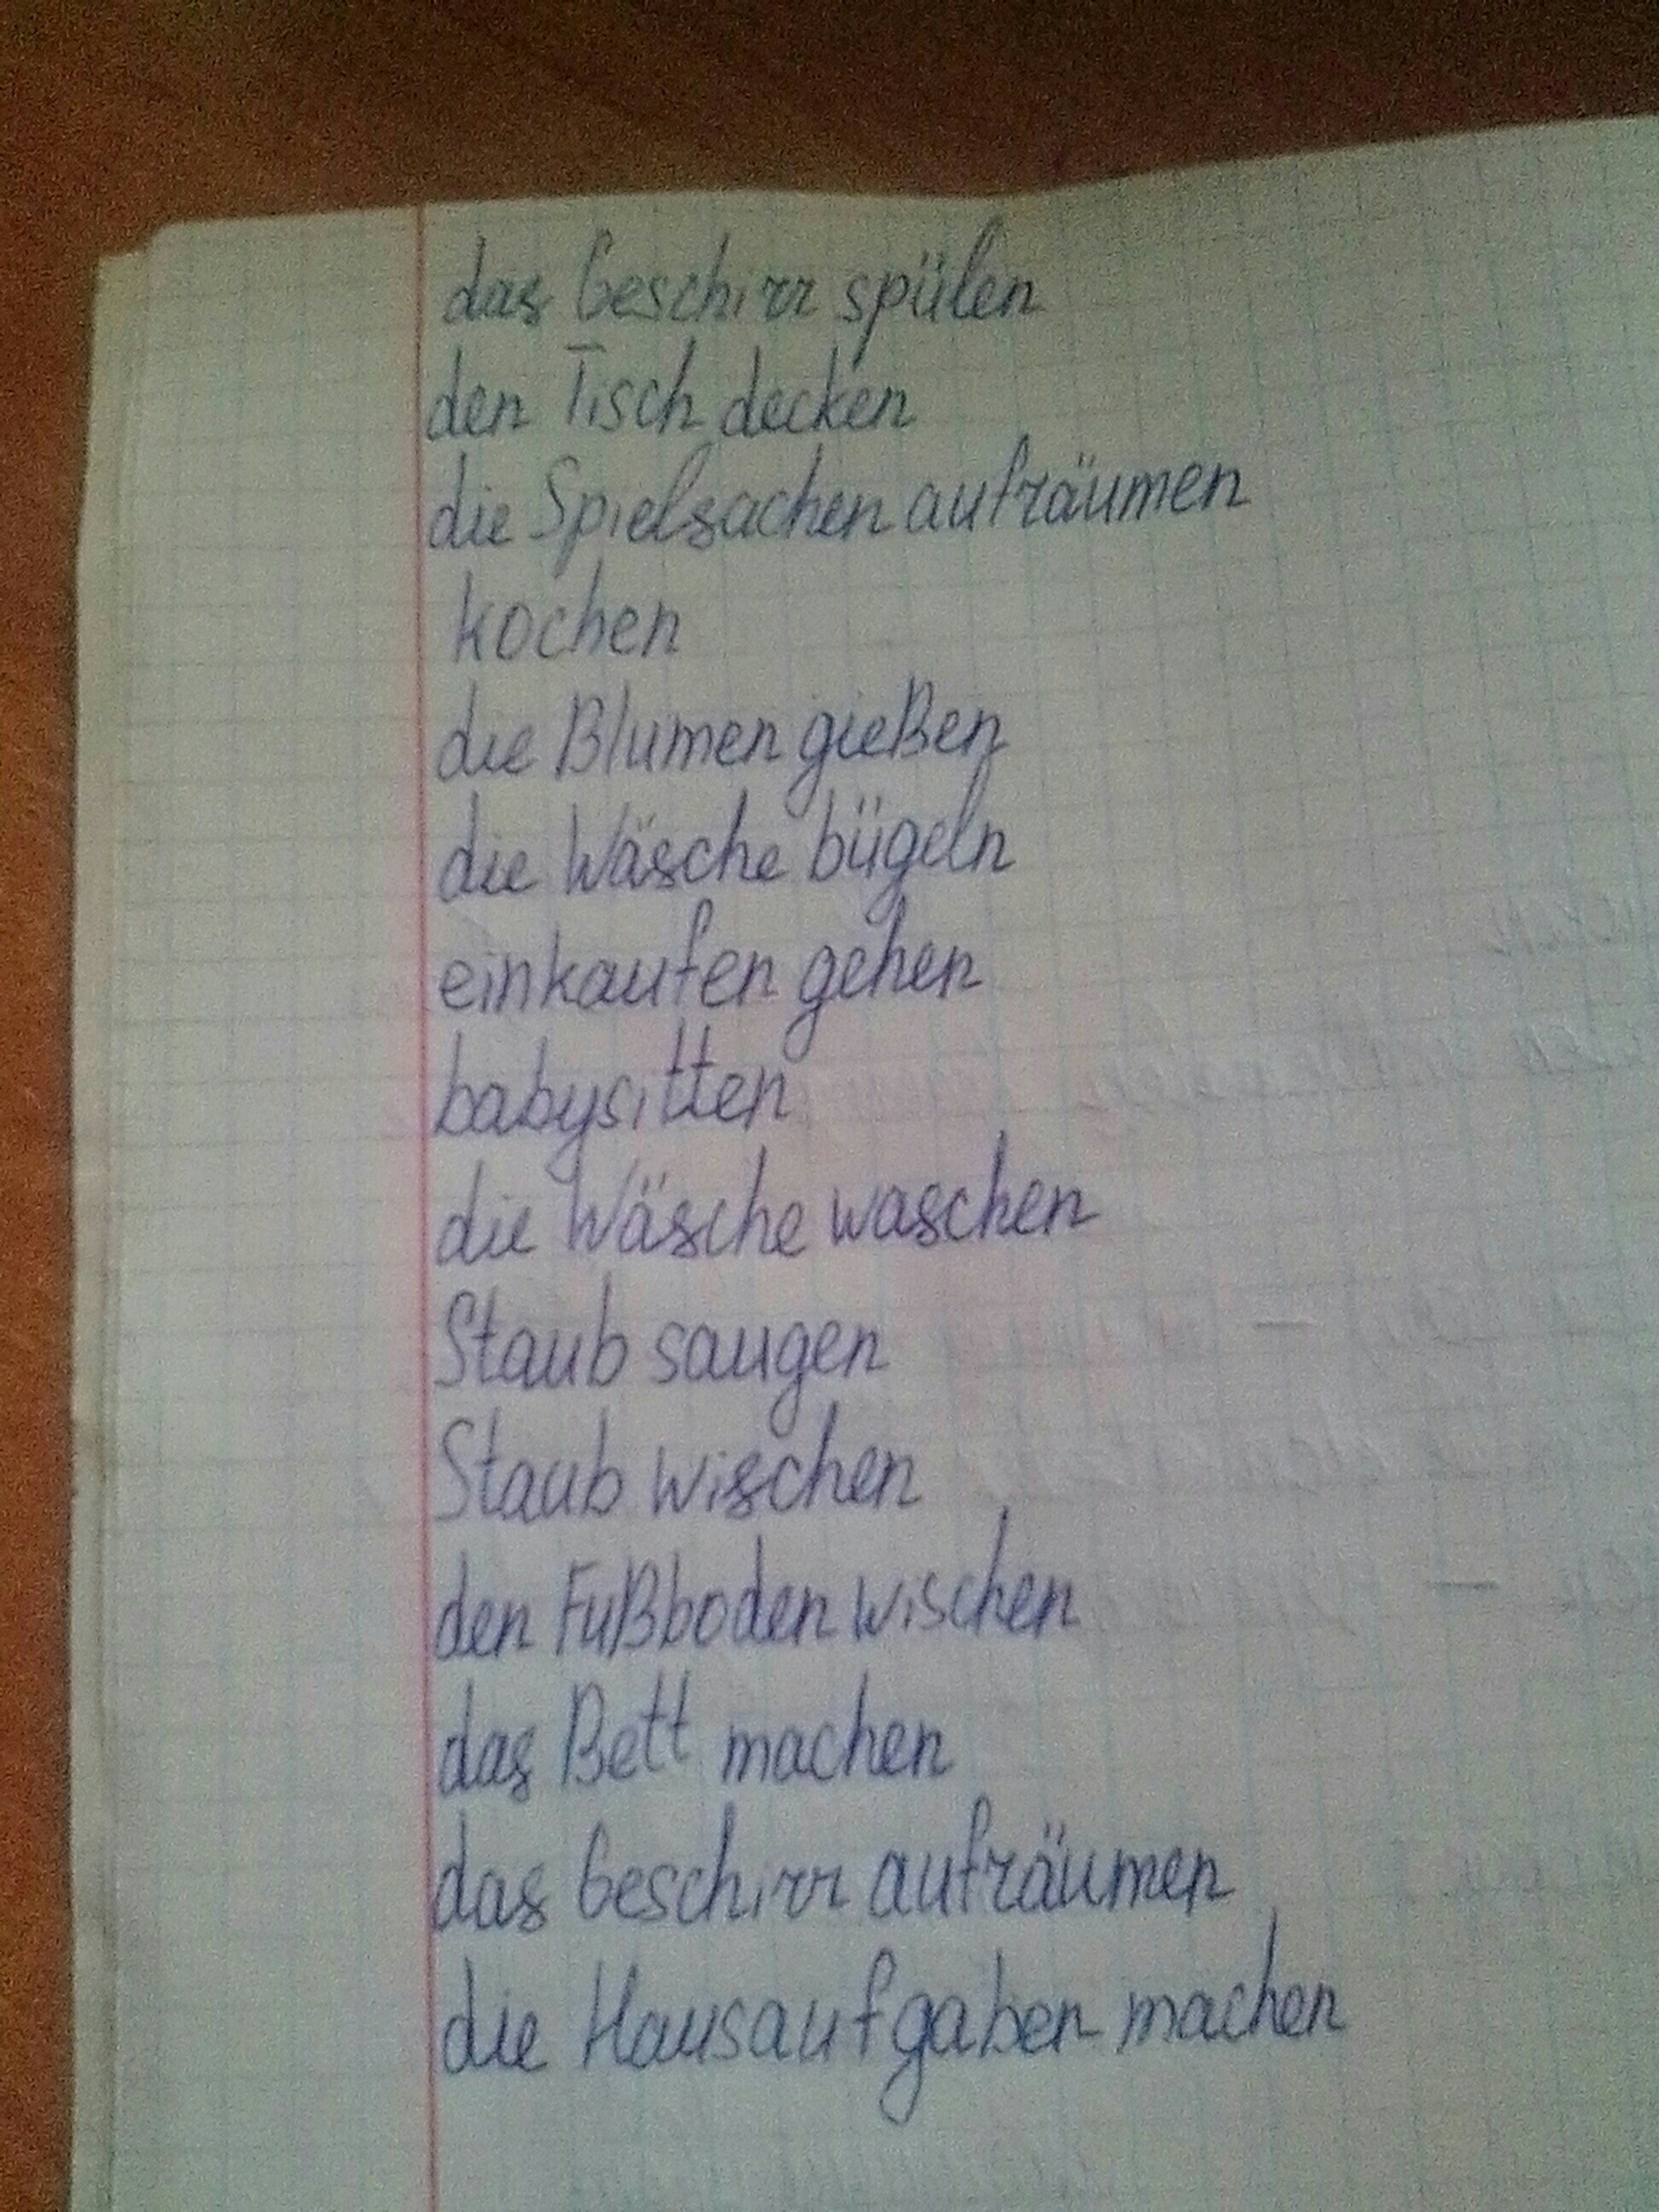 das Geschirr spülen
den Tisch decken
die Spielsachen aufräumen
kochen
die Blumen gießen
die Wäsche bügeln
einkaufen gehen
babysitten
die Wäsche waschen
Staub saugen
Staub wischen
den Fußboden wischen
das Bett machen
das Geschirr aufräumen
die Hausaufgaben machen